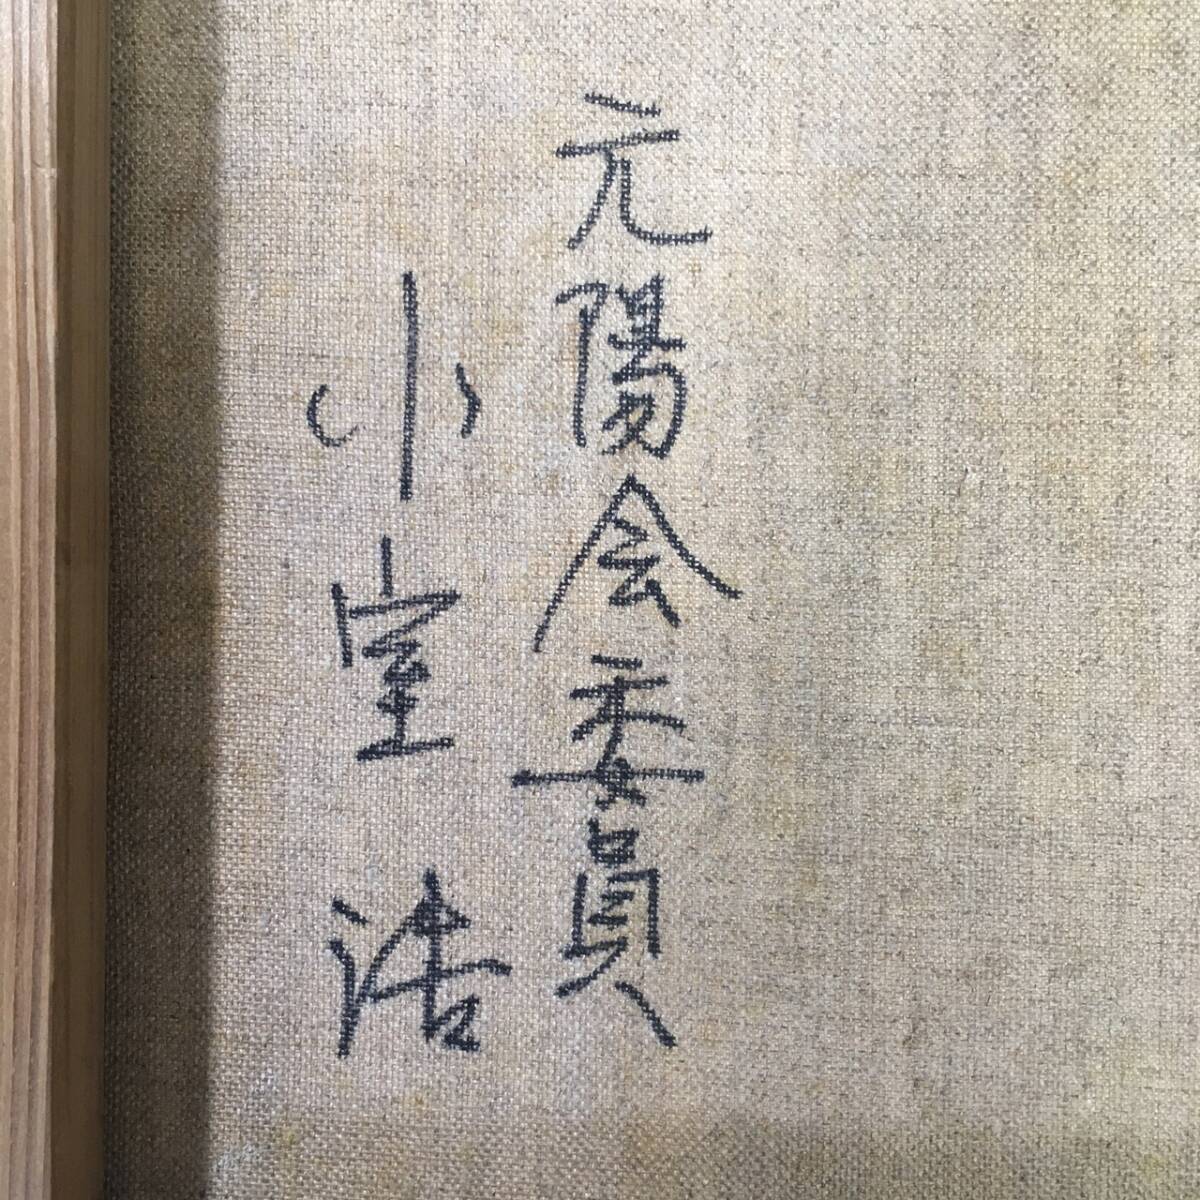 元陽会委員
小室浩